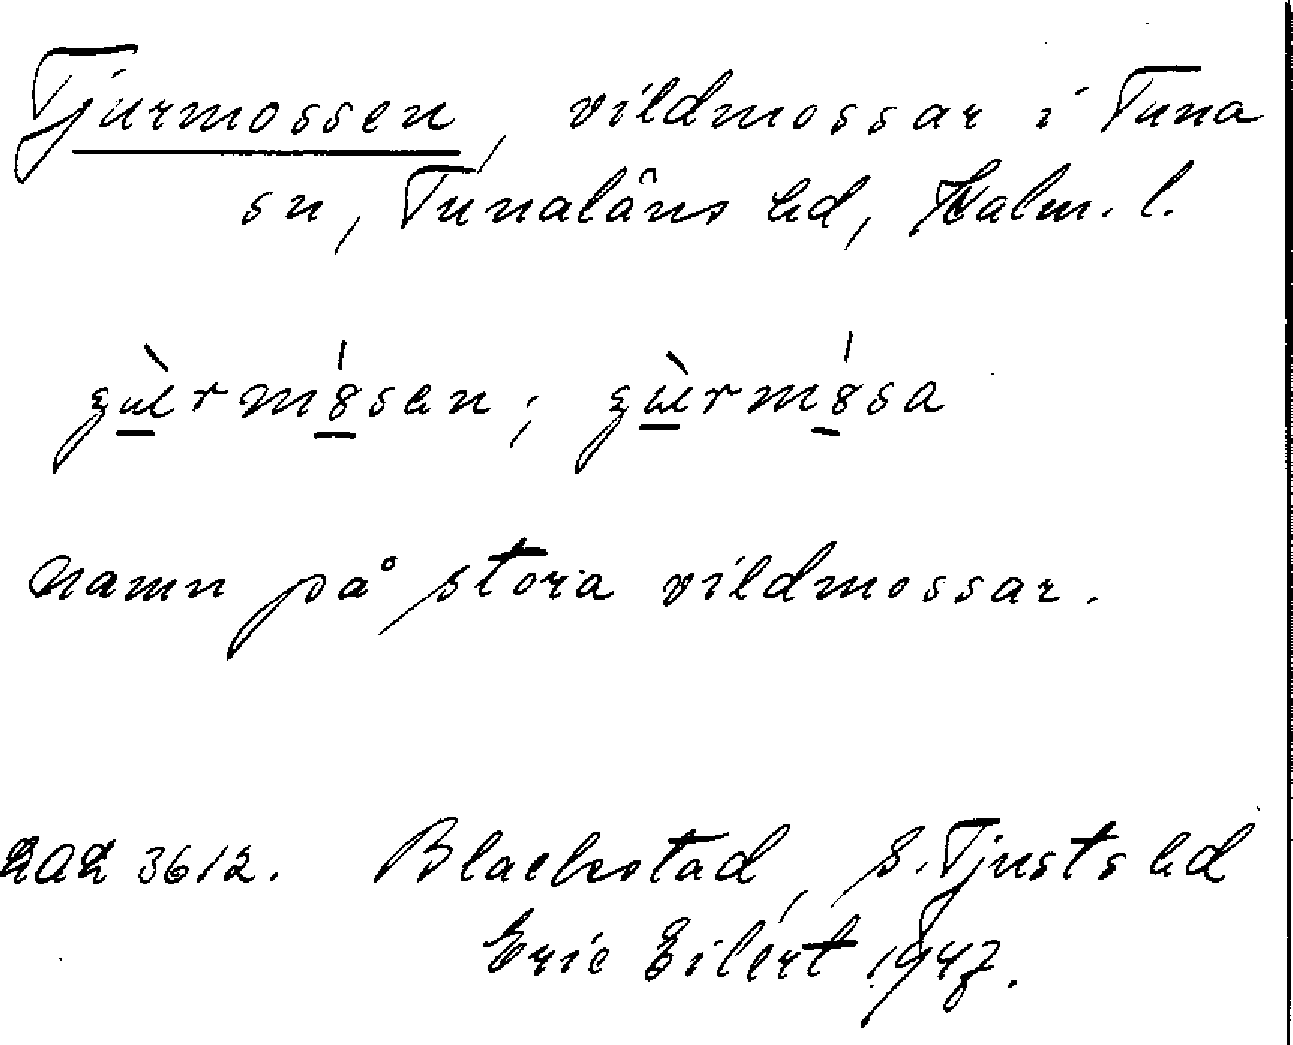 Tjurmossen, vildmossar i Tuna
sn, Tunaläns hd, Kalm. l.
namn på stora vildmossar.
3612. Blackstad, S. Tjusts hd
Eric Eilert 1947.